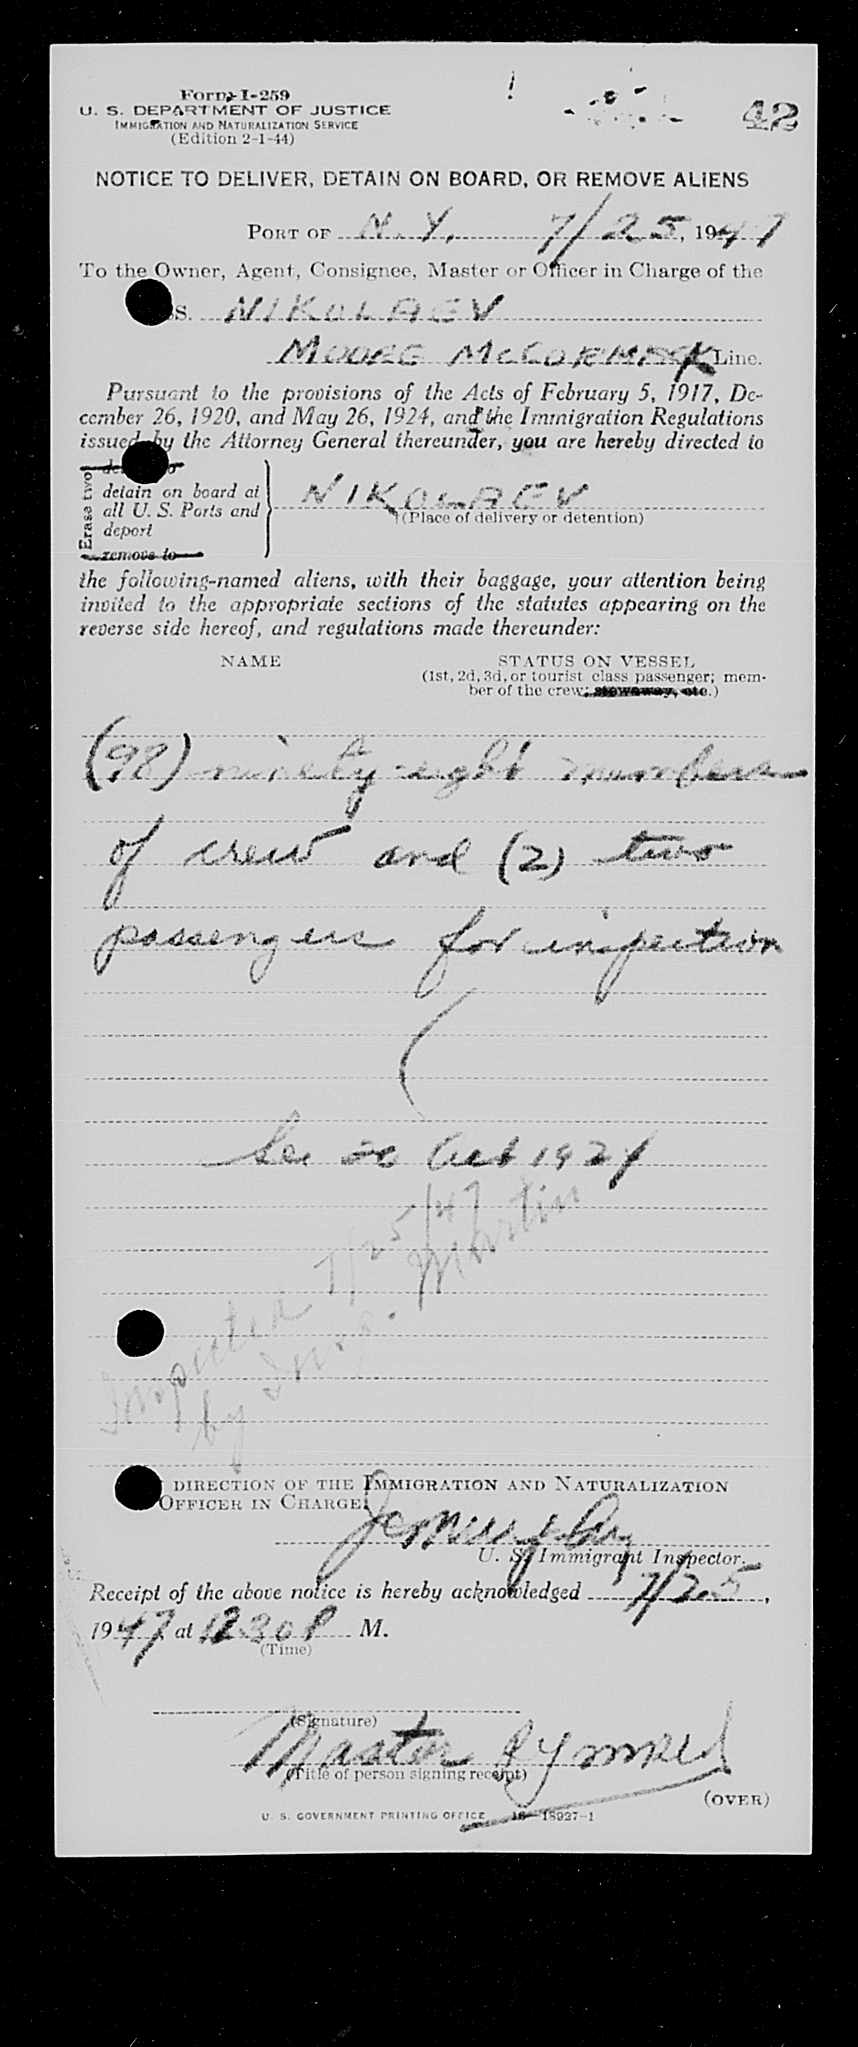 Form I-259
U. S. DEPARTMENT OF JUSTICE
IMMIGRATION AND NATURALIZATION SERVICE
(Edition 2-1-44)
42
NOTICE TO DELIVER, DETAIN ON BOARD, OR REMOVE ALIENS
PORT OF N. Y. 7/25, 1947
To the Owner, Agent, Consignee, Master or Officer in Charge of the
SS. NIKOLAEV
MOORE McCORMACK Line.
Pursuant to the provisions of the Acts of February 5, 1917, De-
cember 26, 1920, and May 26, 1924, and the Immigration Regulations
issued by the Attorney General thereunder, you are hereby directed to
Erase two
detain on board at
all U. S. Ports and
deport
remove to
NIKOLAEV
(Place of delivery or detention)
the following-named aliens, with their baggage, your attention being
invited to the appropriate sections of the statutes appearing on the
reverse side hereof, and regulations made thereunder:
NAME STATUS ON VESSEL
(1st, 2d, 3d, or tourist class passenger; mem-
ber of the crew; stowaway, etc.)
(98) ninety-eight members
of crew and (2) two
passengers for inspection
Sec 20 Act 1924
Inspected 7/25/47
by Insp. Martin
DIRECTION OF THE IMMIGRATION AND NATURALIZATION
OFFICER IN CHARGE:
U. S. Immigrant Inspector.
Receipt of the above notice is hereby acknowledged 7/25,
1947 at 1230 P M.
(Time)
(Signature)
Master
(Title of person signing receipt)
(OVER)
U. S. GOVERNMENT PRINTING OFFICE 16—18927-1